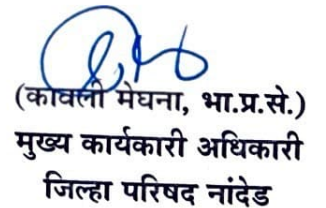 (कावली मेघना, भा.प्र.से.)
मुख्य कार्यकारी अधिकारी
जिल्हा परिषद नांदेड